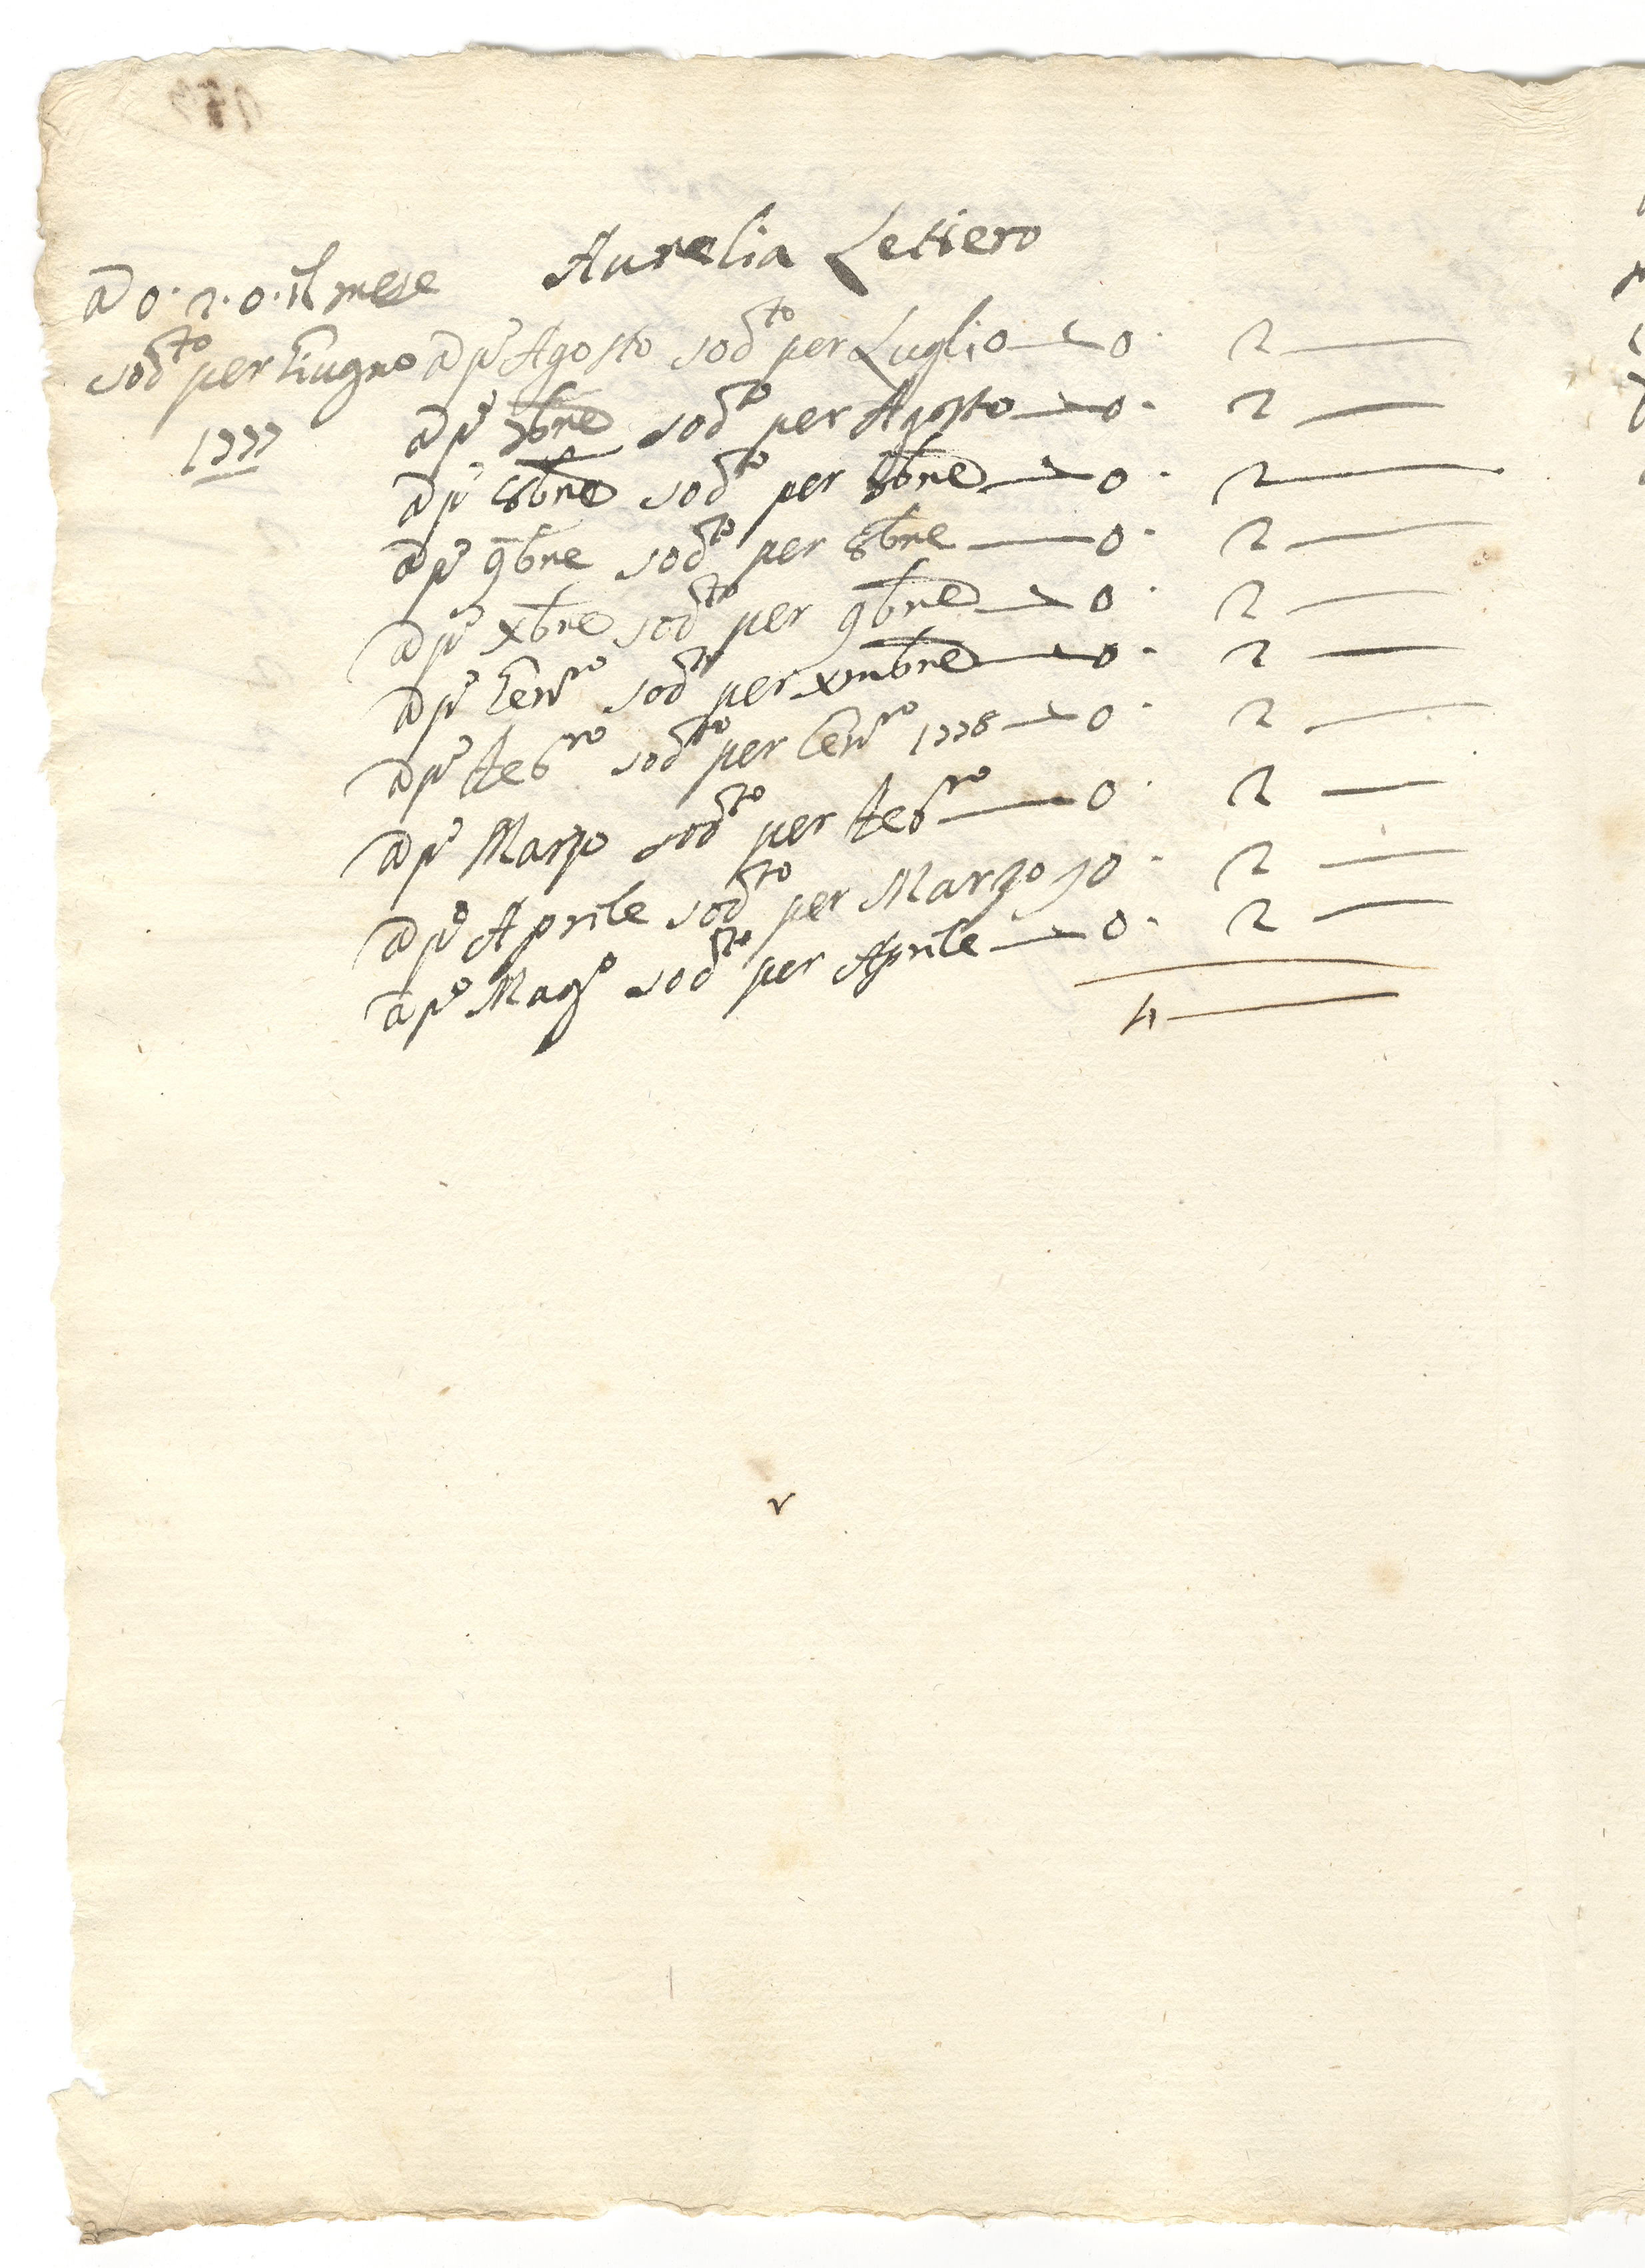 Aurelia Letiero
a 0. 2. 0. il mese
sodto per Giugno
1777
a pº Agosto sodto per Luglio — 0. 2 —
a pº 7bre sodto per Agosto — 0. 2 —
a pº 8bre sodto per 7bre — 0. 2 —
a pº 9bre sodto per 8bre — 0. 2 —
a pº xbre sodto per 9bre — 0. 2 —
a pº Genro sodto per xmbre — 0. 2 —
a pº Febro sodto per Genro 1778 — 0. 2 —
a pº Marzo sodto per Febro — 0. 2 —
a pº Aprile sodto per Marzo — 0. 2 —
a pº Magº sodto per Aprile — 0. 2 —
4 —